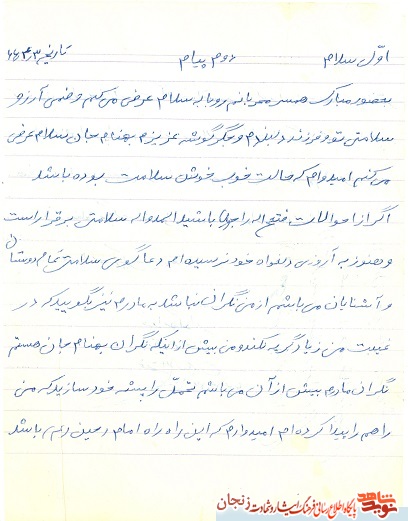 اول سلام دوم پیام تاریخ ۶۶/۴/۳
بحضور مبارک همسر مهربانم رویا به سلام عرض می کنم و ضمن آرزو
سلامتی تو و فرزند دلبندم و جگرگوشه عزیزم بهنام جان سلام عرض
می کنم امیدوارم که حالت خوب خوش سلامت بوده باشد
اگر از احوالات فتح اله را جویا باشید الحمد اله سلامتی برقرار است
و هنوز به آرزوی دلخواه خود نرسیده ام دعاگوی سلامتی تمام دوستان
و آشنایان می باشم از من نگران نباشد به مادرم نیز بگویید که در
غیبت من زیاد گریه نکند و من بیش از اینکه نگران بهنام جان هستم
نگران مادرم بیش از آن می باشم تحمل را پیشه خود سازید که من
راهم را پیدا کرده ام امیدوارم که این راه راه امام حسین (ع) باشد
نوید شاهد
پایگاه اطلاع رسانی فرهنگ ایثار و شهادت زنجان